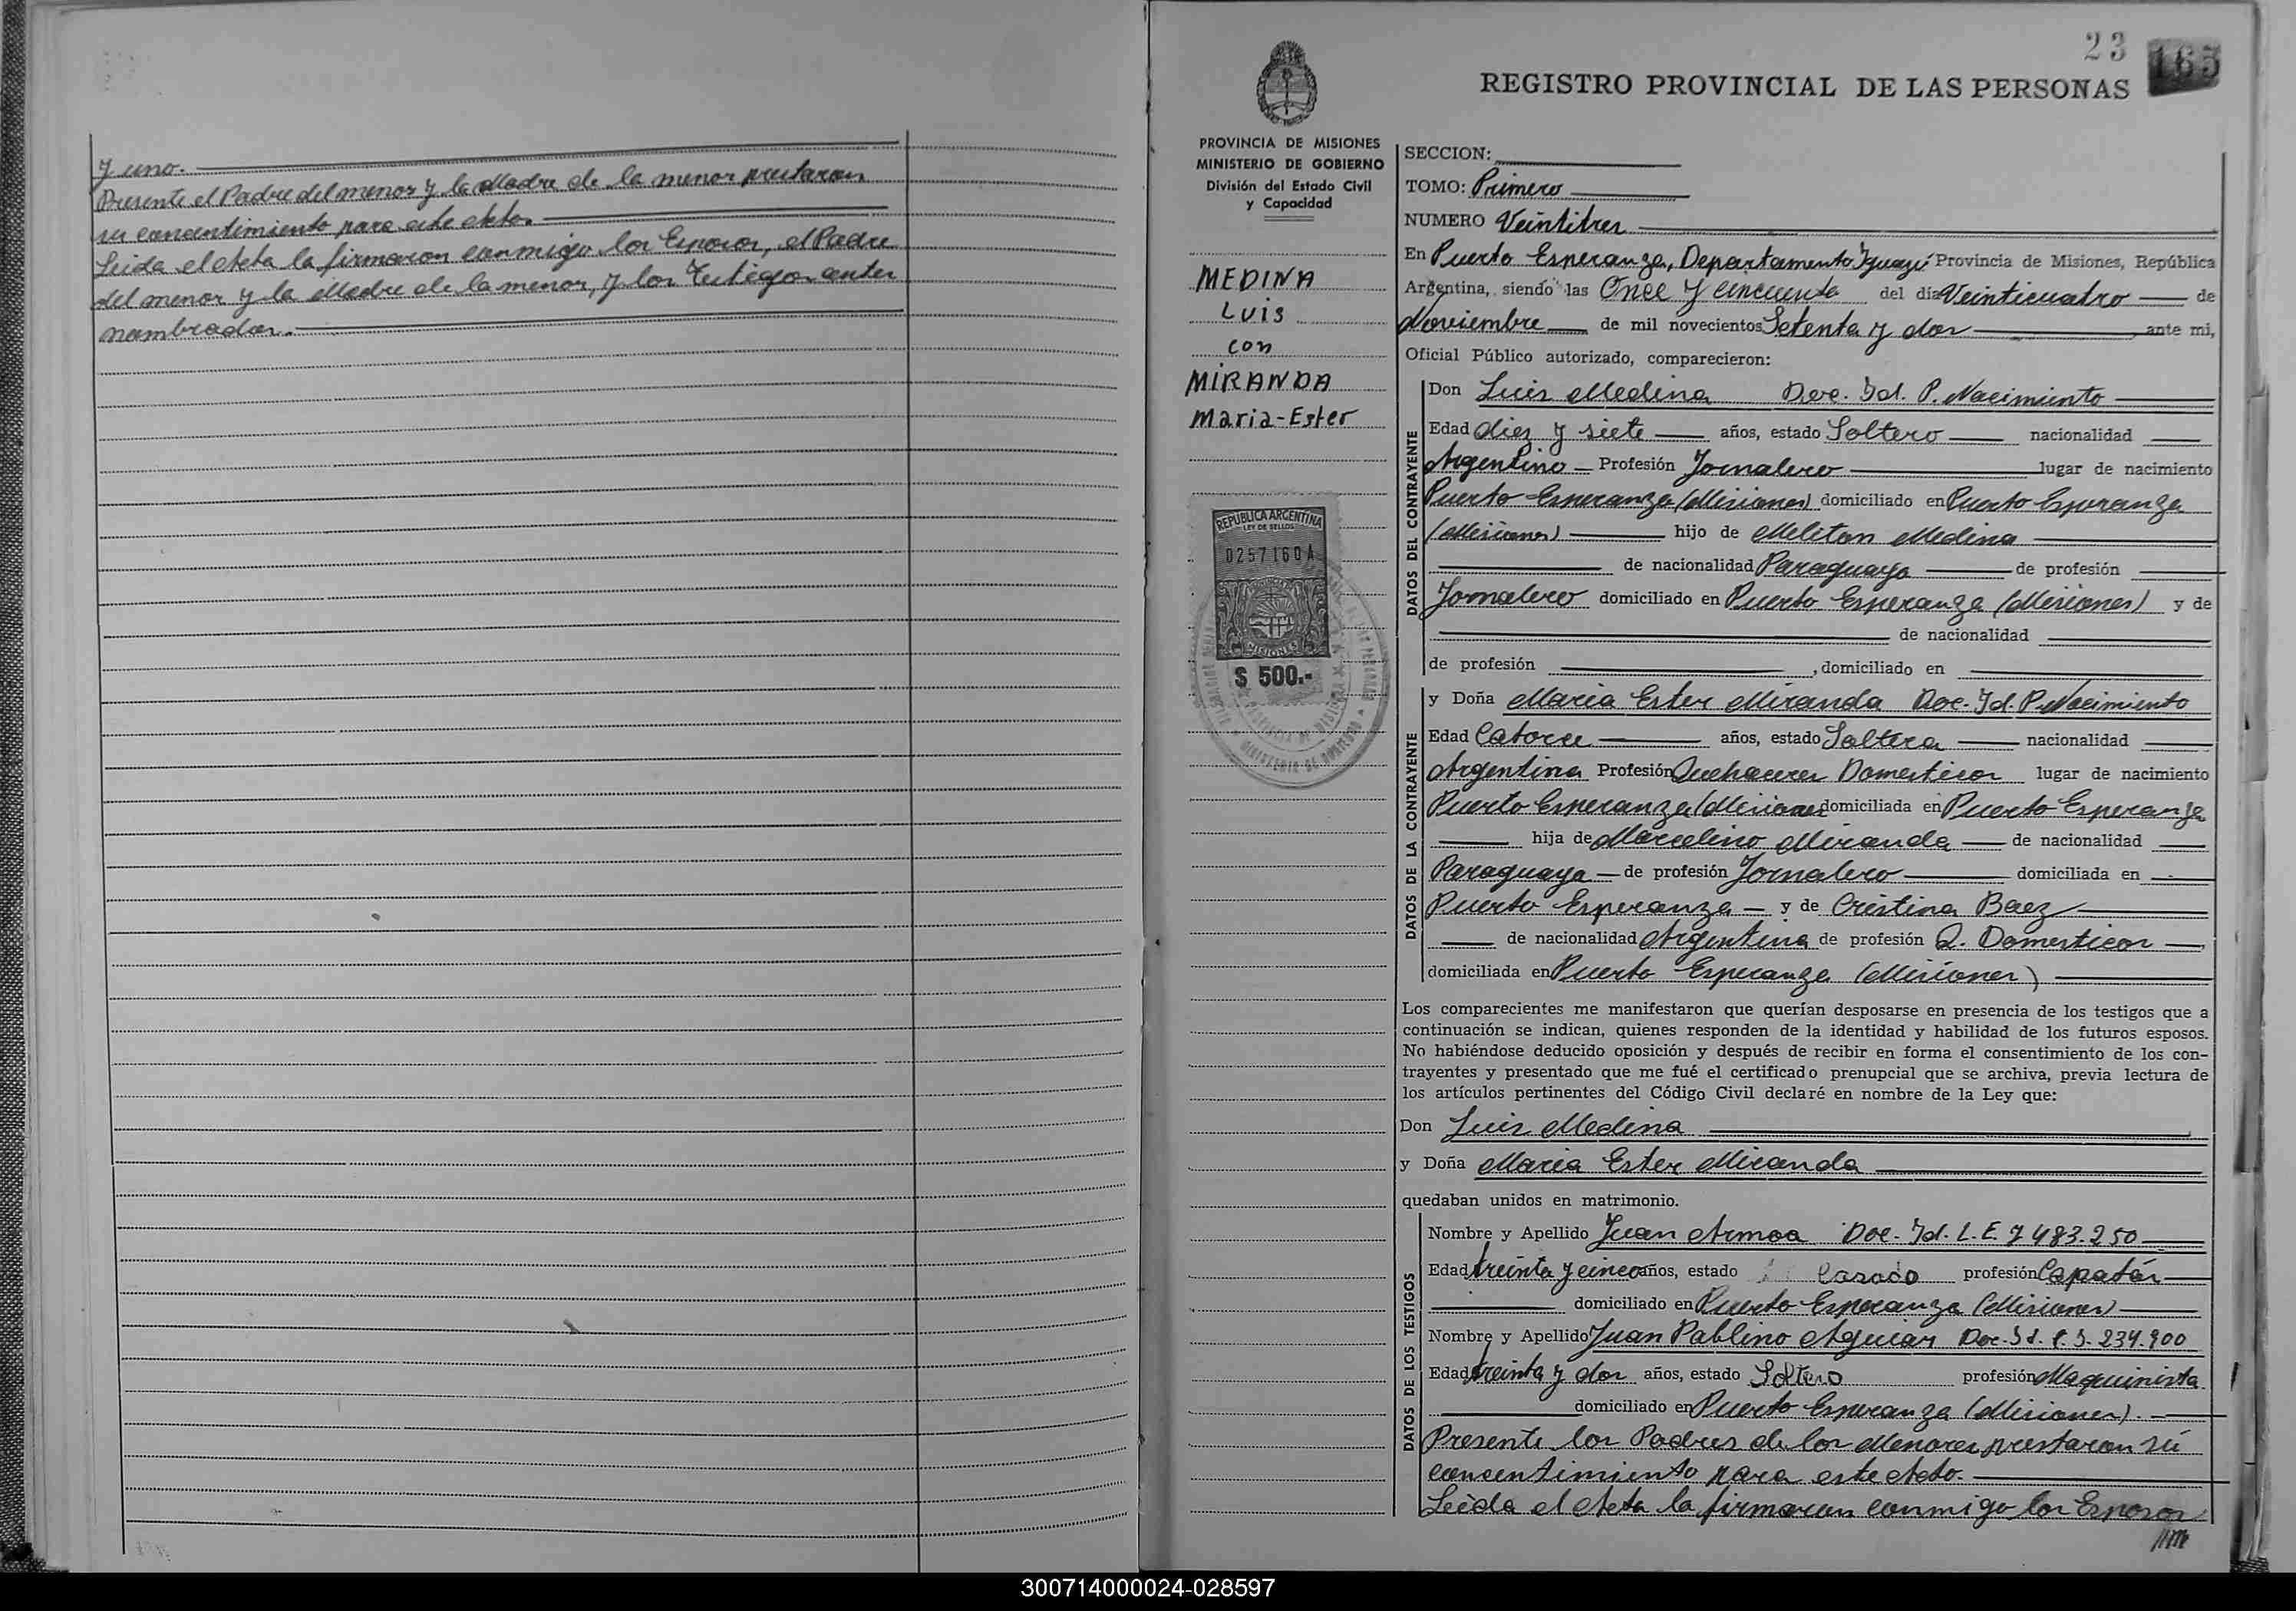 y uno.
Presente el Padre del menor y la Madre de la menor prestaron
su consentimiento para este Acto.
Leida el Acta la firmaron conmigo los Esposos, el Padre
del menor y la Madre de la menor, y los Testigos antes
nombrados.
23
165
REGISTRO PROVINCIAL DE LAS PERSONAS
PROVINCIA DE MISIONES
MINISTERIO DE GOBIERNO
División del Estado Civil
y Capacidad
MEDINA
Luis
con
MIRANDA
Maria-Ester
REPUBLICA ARGENTINA
LEY DE SELLOS
0257160A
MISIONES
$ 500.-
SECCION:
TOMO: Primero
NUMERO Veintitres
En Puerto Esperanza, Departamento Iguazú Provincia de Misiones, República
Argentina, siendo las Once y cincuenta del día Veinticuatro de
Noviembre de mil novecientos Setenta y dos ante mi,
Oficial Público autorizado, comparecieron:
DATOS DEL CONTRAYENTE
Don Luis Medina Doc. Id. P. Nacimiento
Edad diez y siete años, estado Soltero nacionalidad
Argentino Profesión Jornalero lugar de nacimiento
Puerto Esperanza (Misiones) domiciliado en Puerto Esperanza
(Misiones) hijo de Meliton Medina
de nacionalidad Paraguaya de profesión
Jornalero domiciliado en Puerto Esperanza (Misiones) y de
de nacionalidad
de profesión , domiciliado en
DATOS DE LA CONTRAYENTE
y Doña Maria Ester Miranda Doc. Id. P. Nacimiento
Edad Catorce años, estado Soltera nacionalidad
Argentina Profesión Quehaceres Domesticos lugar de nacimiento
Puerto Esperanza (Misiones domiciliada en Puerto Esperanza
hija de Marcelino Miranda de nacionalidad
Paraguaya de profesión Jornalero domiciliada en
Puerto Esperanza y de Cristina Baez
de nacionalidad Argentina de profesión Q. Domesticos
domiciliada en Puerto Esperanza (Misiones)
Los comparecientes me manifestaron que querían desposarse en presencia de los testigos que a
continuación se indican, quienes responden de la identidad y habilidad de los futuros esposos.
No habiéndose deducido oposición y después de recibir en forma el consentimiento de los con-
trayentes y presentado que me fué el certificado prenupcial que se archiva, previa lectura de
los artículos pertinentes del Código Civil declaré en nombre de la Ley que:
Don Luis Medina
y Doña Maria Ester Miranda
quedaban unidos en matrimonio.
DATOS DE LOS TESTIGOS
Nombre y Apellido Juan Armoa Doc. Id. L.E. 7483.250
Edad treinta y cinco años, estado Casado profesión Capatáz
domiciliado en Puerto Esperanza (Misiones)
Nombre y Apellido Juan Pablino Aguiar Doc. Id. C.I. 234.900
Edad treinta y dos años, estado Soltero profesión Maquinista
domiciliado en Puerto Esperanza (Misiones).
Presente los Padres de los Menores prestaron sú
consentimiento para este Acto.
Leída el Acta la firmaron conmigo los Esposos
300714000024-028597